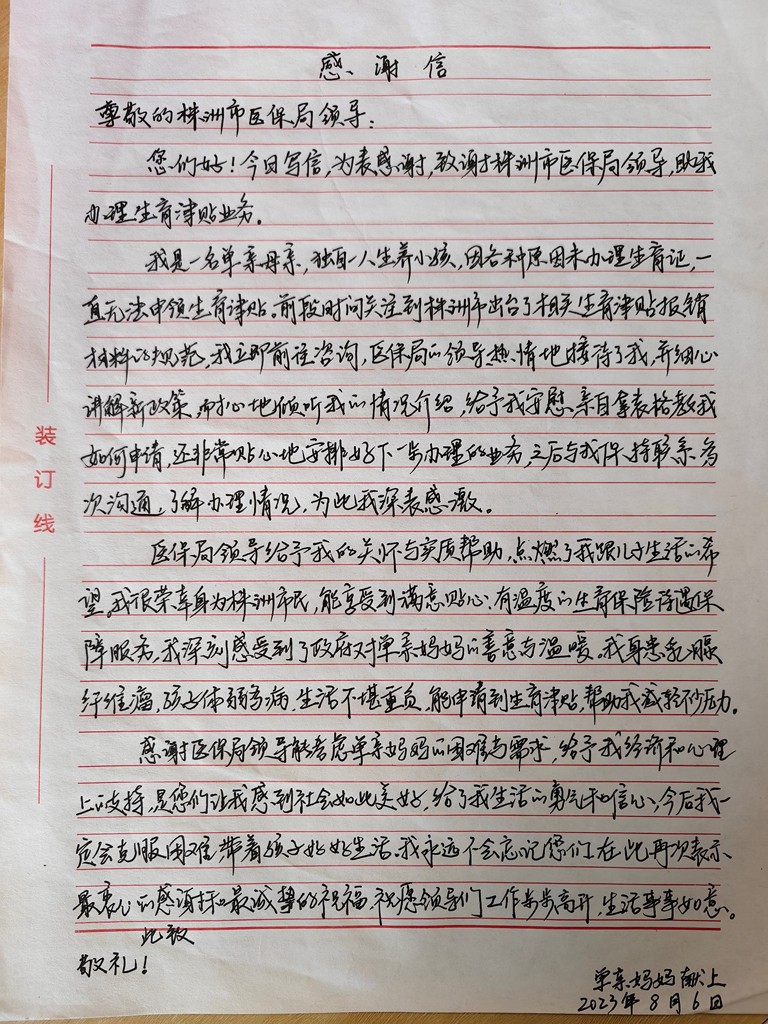 感谢信
尊敬的株洲市医保局领导:
您们好!今日写信,为表感谢,致谢于株洲市医保局领导,助我
办理生育津贴业务。
我是一名单亲母亲,独自一人生养小孩,因各种原因未办理生育证,一
直无法申领生育津贴。前段时间关注到株洲市出台了相关生育津贴报销
材料的规范,我立即前往咨询,医保局的领导热情地接待了我,并细心
讲解新政策,耐心地倾听我的情况介绍,给予我安慰,亲自拿表格教我
如何申请,还非常贴心地安排好下一步办理的业务,之后与我保持联系,多
次沟通,了解办理情况,为此我深表感激。
医保局领导给予我的关怀与实质帮助,点燃了我跟儿子生活的希
望。我很荣幸身为株洲市民,能享受到满意贴心、有温度的生育保险待遇保
障服务,我深刻感受到了政府对单亲妈妈的善意与温暖。我身患乳腺
纤维瘤,孩子体弱多病,生活不堪重负,能申请到生育津贴,帮助我减轻不少压力。
感谢医保局领导能考虑单亲妈妈的困难与需求,给予我经济和心理
上的支持,是您们让我感到社会如此美好,给了我生活的勇气和信心,今后我一
定会克服困难,带着孩子好好生活。我永远不会忘记您们,在此再次表示
最衷心的感谢和最诚挚的祝福,祝愿领导们工作步步高升,生活事事如意。
此致
敬礼!
单亲妈妈献上
2023年8月6日
装订线